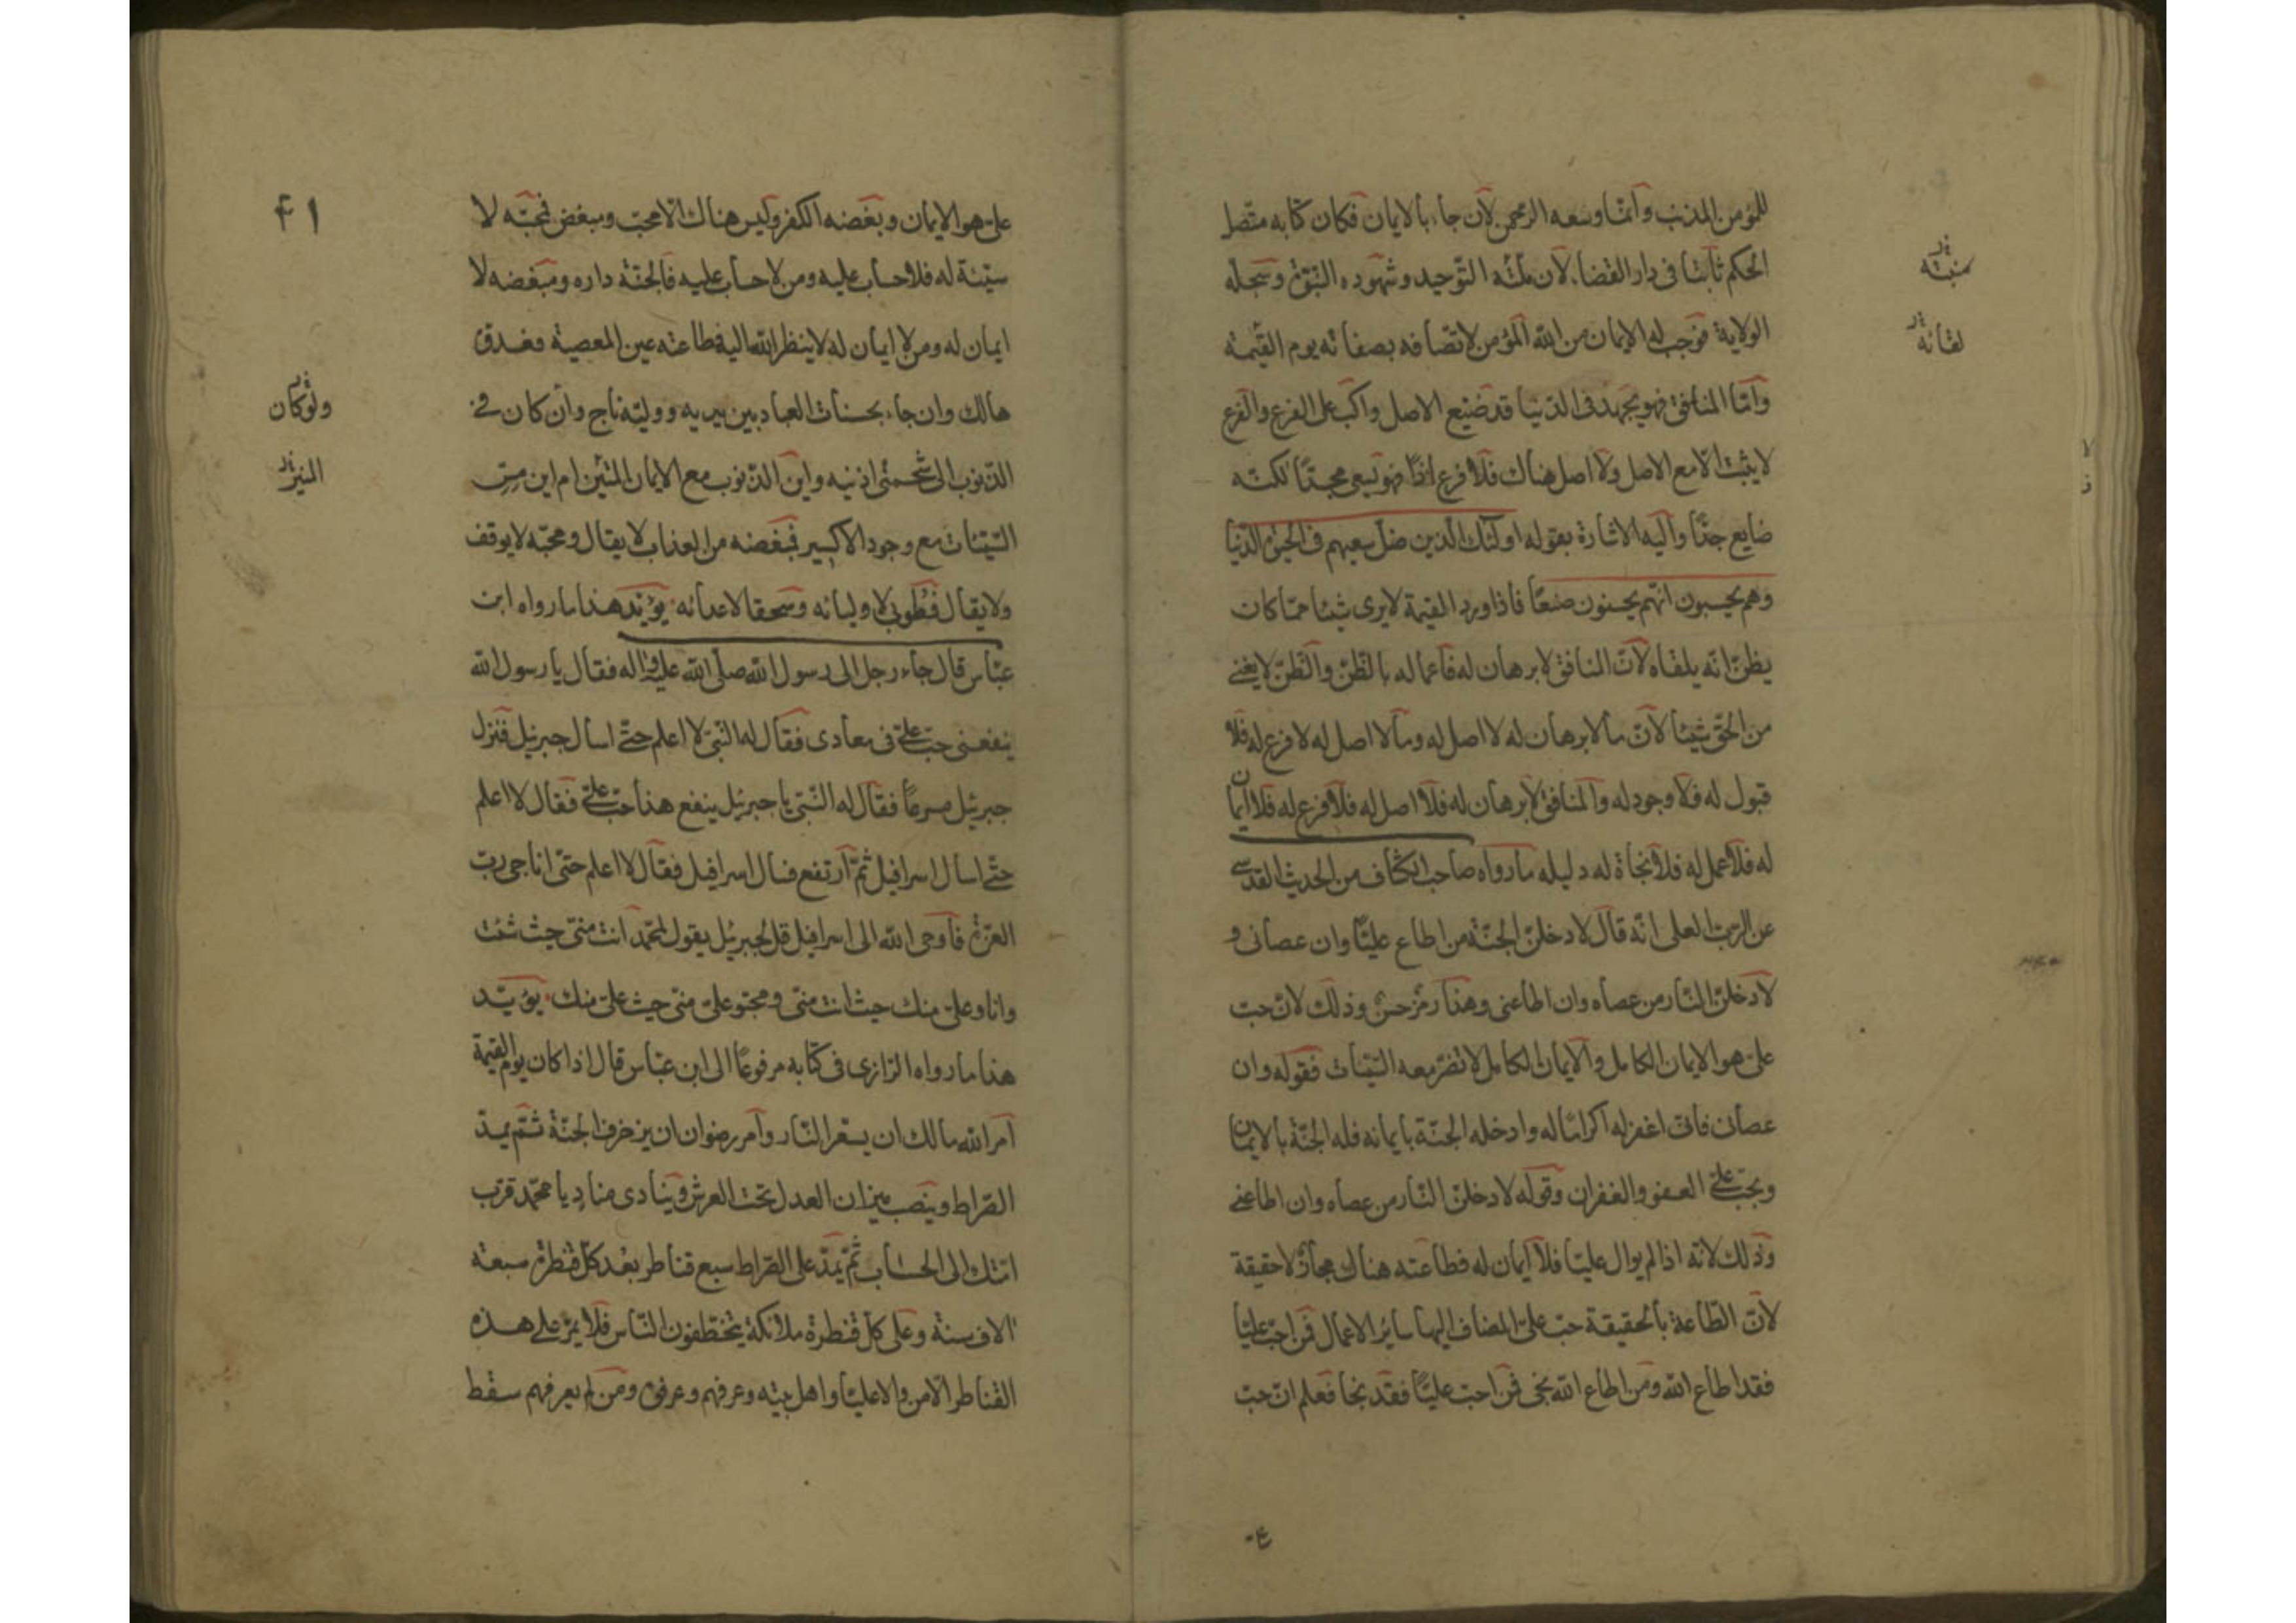 للمؤمن المذنب وانما وسعه الرحمن لان جاء بالايمان فكان كتابه متصل
الحكم ثابتا فى دار القضاء لان ملته التوحيد وشهوده النبوة وسجله
الولاية فوجب له الايمان من الله المؤمن لاتصافه بصفاته يوم القيمة
وامّا المنافق فهو يجهد فى الدنيا قد ضيع الاصل واكب على الفرع والفرع
لا يثبت الا مع الاصل ولا اصل هناك فلا فرع اذًا فهو يسعى مجدًا لكنه
ضايع جدًّا واليه الاشارة بقوله اولئك الذين ضل سعيهم فى الحيوة الدنيا
وهم يحسبون انهم يحسنون صنعًا فاذا ورد القيمة لا يرى شيئا مما كان
يظن انه يلقاه لان المنافق لا برهان له فاعماله بالظن والظن لا يغنى
من الحق شيئا لان ما لا برهان له لا اصل له وما لا اصل له لا فرع له فلا
قبول له فلا وجود له والمنافق لا برهان له فلا اصل له فلا فرع له فلا ايمان
له فلا عمل له فلا نجاة له دليله ما رواه صاحب الكشاف من الحديث القدسى
عن الرب العلى انه قال لادخلن الجنة من اطاع عليًّا وان عصانى و
لادخلن النار من عصاه وان اطاعنى وهذا رمز حسن وذلك لان حب
على هو الايمان الكامل والايمان الكامل لا تضر معه السيئات فقوله وان
عصانى فانى اغفر له اكرامًا له وادخله الجنة بايمانه فله الجنة بالايمان
وبحب على العفو والغفران وقوله لادخلن النار من عصاه وان اطاعنى
وذلك لانه اذا لم يوال عليًا فلا ايمان له فطاعته هناك مجازًا لا حقيقة
لان الطاعة بالحقيقة حب على المضاف اليها سائر الاعمال فمن احب عليًا
فقد اطاع الله ومن اطاع الله نجى فمن احب عليًّا فقد نجا فعلم ان حب
لقائه
ع-
٤١
على هو الايمان وبغضه الكفر وليس هناك الا محب ومبغض فمحبه لا
سيئة له فلا حساب عليه ومن لا حساب عليه فالجنة داره ومبغضه لا
ايمان له ومن لا ايمان له لا ينظر الله اليه فطاعته عين المعصية فعدوه
هالك وان جاء بحسنات العباد بين يديه ووليه ناج وان كان فى
الذنوب الى شحمتى اذنيه واين الذنوب مع الايمان المتين ام اين مس
السيئات مع وجود الاكسير فمبغضه من العذاب لا يقال ومحبه لا يوقف
ولا يقال فطوبى لاوليائه وسحقا لاعدائه يؤيد هذا ما رواه ابن
عباس قال جاء رجل الى رسول الله صلى الله عليه واله فقال يا رسول الله
ينفعنى حب على فى معادى فقال له النبى لا اعلم حتى اسال جبرئيل فنزل
جبرئيل مسرعًا فقال له النبى يا جبرئيل ينفع هذا حب على فقال لا اعلم
حتى اسال اسرافيل ثم ارتفع فسال اسرافيل فقال لا اعلم حتى اناجى رب
العزة فاوحى الله الى اسرافيل قل لجبرئيل يقول لمحمد انت منى حيث شئت
وانا وعلى منك حيث انت منى ومحبو على منى حيث على منك يؤيد
هذا ما رواه الرازى فى كتابه مرفوعًا الى ابن عباس قال اذا كان يوم القيمة
امر الله مالك ان يسعر النار وامر رضوان ان يزخرف الجنة ثم يمد
الصراط وينصب ميزان العدل تحت العرش وينادى مناد يا محمد قرب
امتك الى الحساب ثم يمد على الصراط سبع قناطر بعد كل قنطرة سبعة
الاف سنة وعلى كل قنطرة ملائكة يتخطفون الناس فلا يمر على هذه
القناطر الا من والا عليًا واهل بيته وعرفهم وعرفوه ومن لم يعرفهم سقط
ولو كان